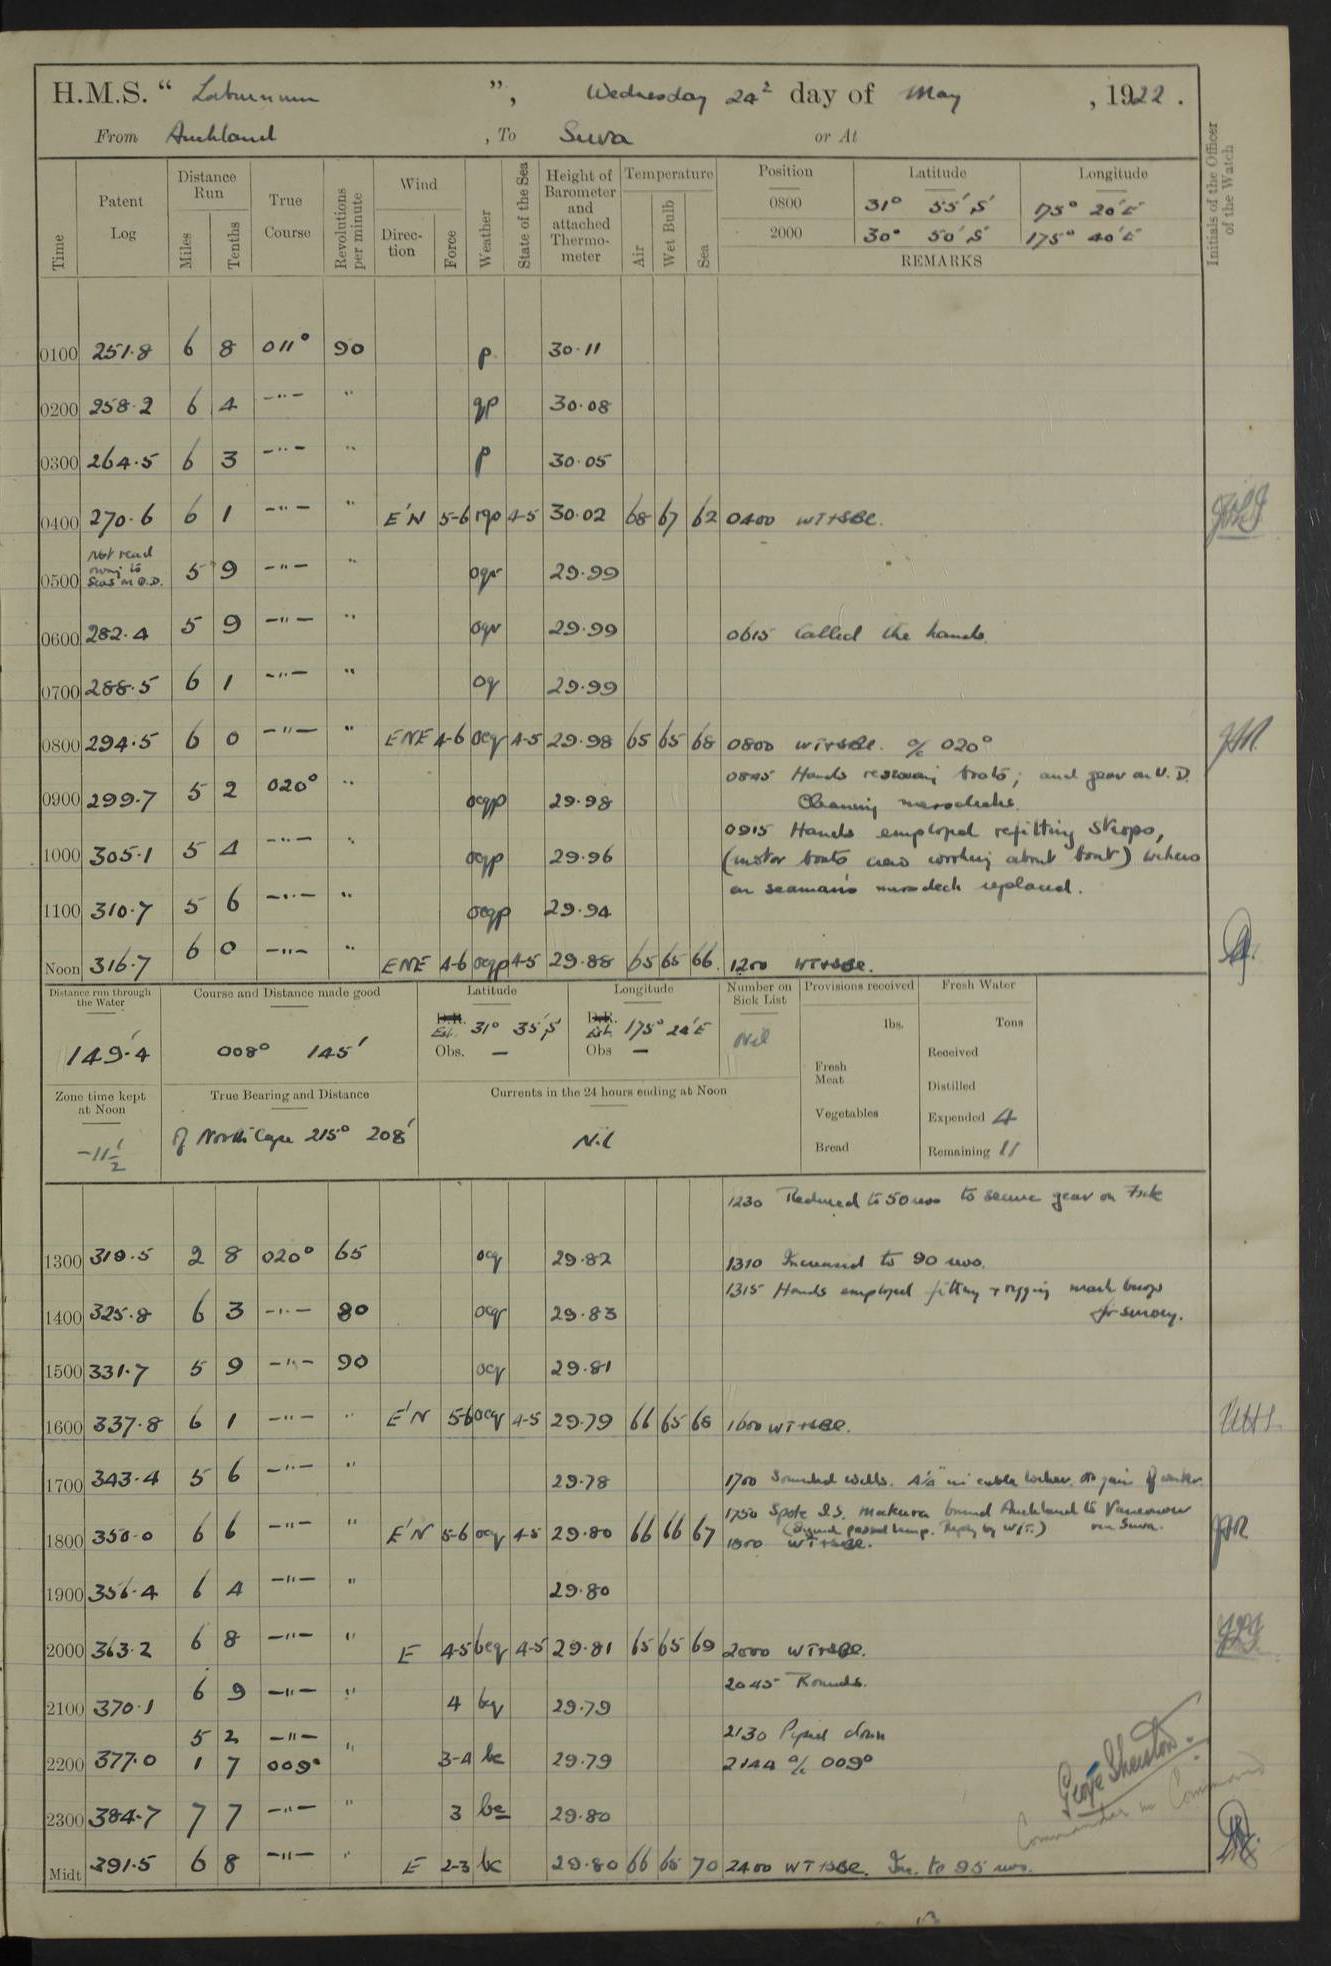 H.M.S. " Laburnum ", Wednesday 24th day of May, 1922.
From Auckland, To Suva or At
Time Patent Log Distance Run Miles Tenths True Course Revolutions per minute Wind Direction Force Weather State of the Sea Height of Barometer and attached Thermometer Temperature Air Wet Bulb Sea Position Latitude Longitude Initials of the Officer of the Watch
0800 31° 55' S 175° 20' E
2000 30° 50' S 175° 40' E
REMARKS
0100 251.8 6 8 011° 90 p 30.11
0200 258.2 6 4 -"- " qp 30.08
0300 264.5 6 3 -"- " p 30.05
0400 270.6 6 1 -"- " E'N 5-6 rqo 4-5 30.02 68 67 62 0400 WT+SBE.
0500 Not read owing to Seas on Q.D. 5 9 -"- " oqr 29.99
0600 282.4 5 9 -"- " oqr 29.99 0615 Called the hands.
0700 288.5 6 1 -"- " oq 29.99
0800 294.5 6 0 -"- " ENE 4-6 ocq 4-5 29.98 65 65 68 0800 WT+SBE. a/c 020°
0845 Hands boats; and gear on U.D.
0900 299.7 5 2 020° " ocqp 29.98 Cleaning messdecks.
0915 Hands employed refitting strops,
1000 305.1 5 4 -"- " ocqp 29.96 (motor boats crew working about boat)
on seaman's messdeck replaced.
1100 310.7 5 6 -"- " ocqp 29.94
Noon 316.7 6 0 -"- " ENE 4-6 ocqp 4-5 29.88 65 65 66 1200 WT+SBE.
Distance run through the Water Course and Distance made good Latitude Longitude Number on Sick List Provisions received Fresh Water
149.4 008° 145' D.R. Est. 31° 35' S D.R. Est. 175° 24' E Nil lbs. Tons
Obs. — Obs — Fresh Meat Received
Zone time kept at Noon True Bearing and Distance Currents in the 24 hours ending at Noon Distilled
Vegetables Expended 4
-11½ of North Cape 215° 208' Nil Bread Remaining 11
1230 Reduced to 50 revs to secure gear on
1300 319.5 2 8 020° 65 ocq 29.82 1310 Increased to 90 revs.
1315 Hands employed fitting + rigging mark buoys
1400 325.8 6 3 -"- 80 ocq 29.83 for survey.
1500 331.7 5 9 -"- 90 ocq 29.81
1600 337.8 6 1 -"- " E'N 5-6 ocq 4-5 29.79 66 65 68 1600 WT+SBE.
1700 343.4 5 6 -"- " 29.78 1700 Sounded wells. in cable locker. no gain of water.
1750 Spoke S.S. Makura bound Auckland to Vancouver
(Signal passed lamp. Reply by W/T.) via Suva.
1800 350.0 6 6 -"- " E'N 5-6 ocq 4-5 29.80 66 66 67 1800 WT+SBE.
1900 356.4 6 4 -"- " 29.80
2000 363.2 6 8 -"- " E 4-5 bcq 4-5 29.81 65 65 69 2000 WT+SBE.
2045 Rounds.
2100 370.1 6 9 -"- " 4 bq 29.79
5 2 -"- 2130 Piped down
2200 377.0 1 7 009° " 3-4 bc 29.79 2144 a/c 009°
2300 384.7 7 7 -"- " 3 bc 29.80
Midt 391.5 6 8 -"- " E 2-3 bc 29.80 66 65 70 2400 WT+SBE. Inc. to 95 revs.
Commander in Command